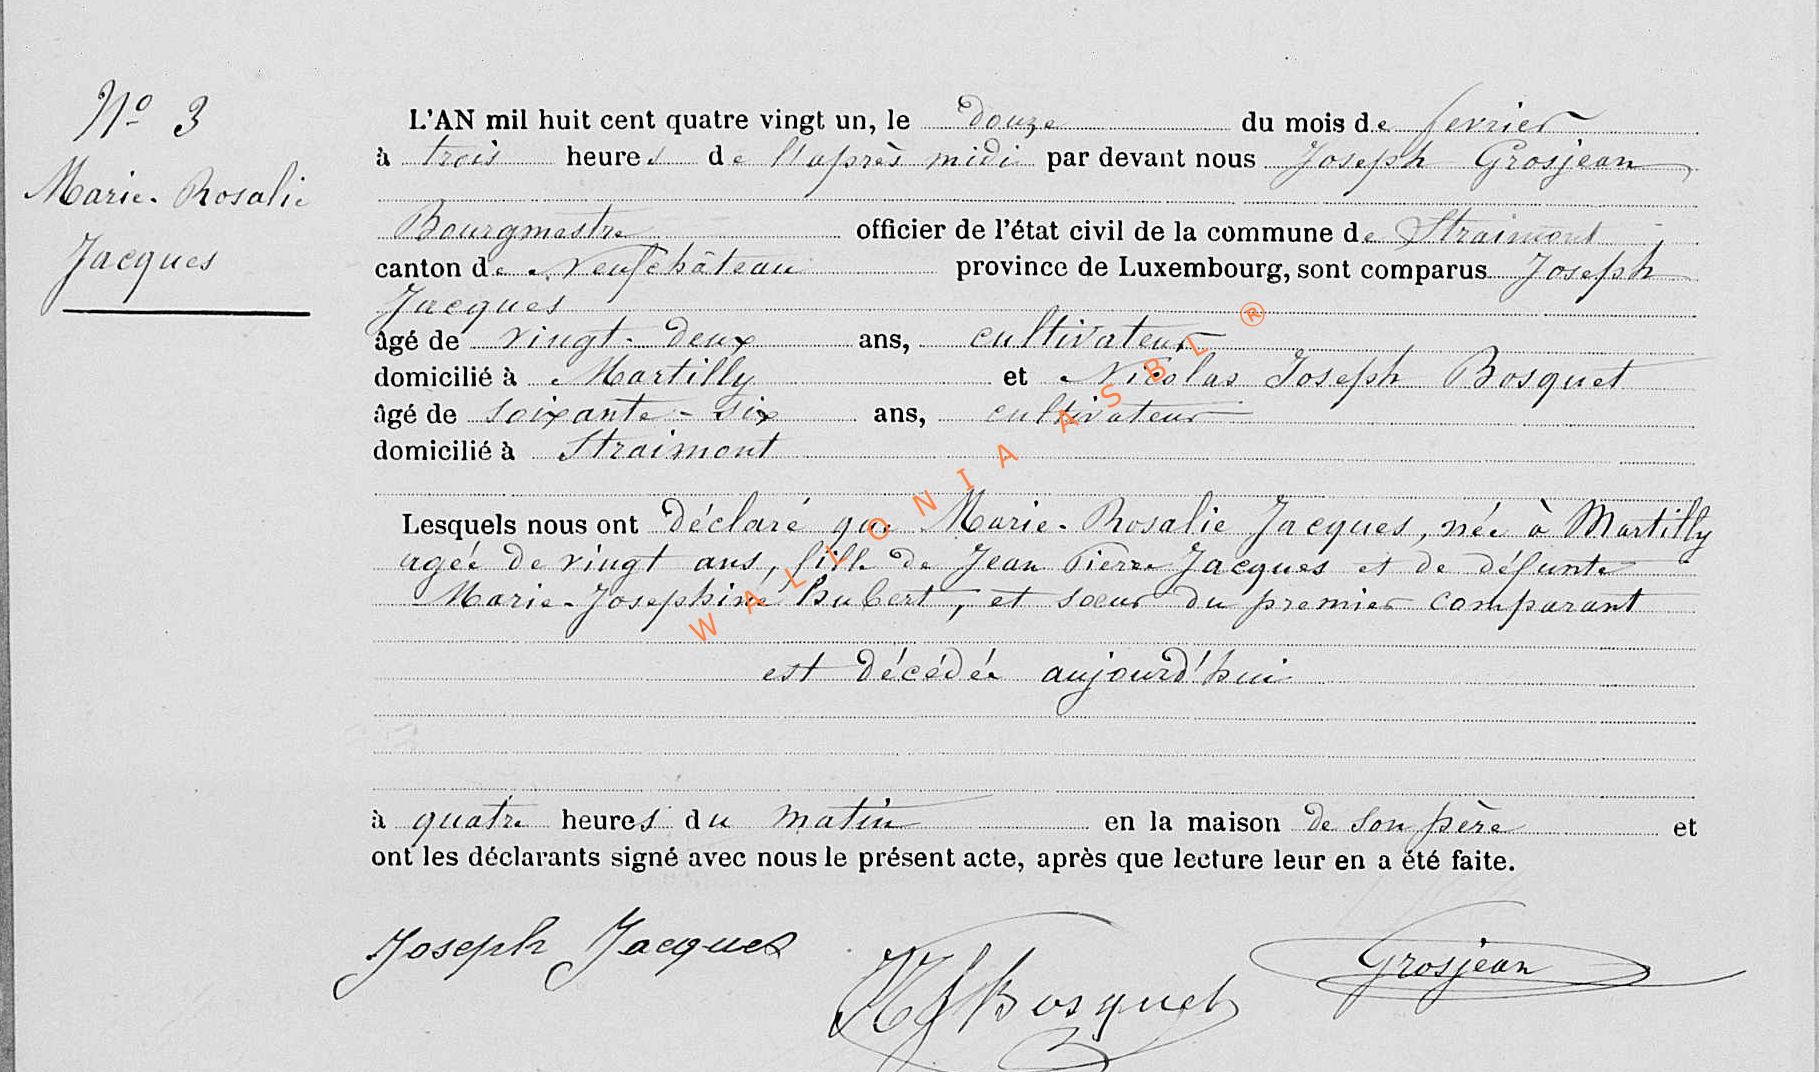 Nº 3
Marie-Rosalie
Jacques
L'AN mil huit cent quatre vingt un, le douze du mois de fevrier
à trois heures de l'après midi par devant nous Joseph Grosjean
Bourgmestre officier de l'état civil de la commune de Straimont
canton de Neufchâteau province de Luxembourg, sont comparus Joseph
Jacques
âgé de vingt-deux ans, cultivateur
domicilié à Martilly et Nicolas Joseph Bosquet
âgé de soixante-six ans, cultivateur
domicilié à Straimont
Lesquels nous ont déclaré que Marie-Rosalie Jacques, née à Martilly
agée de vingt ans, fille de Jean Pierre Jacques et de défunte
Marie-Josephine Hubert, et soeur du premier comparant
est décédée aujourd'hui
à quatre heures du matin en la maison de son père et
ont les déclarants signé avec nous le présent acte, après que lecture leur en a été faite.
Joseph Jacques
NJ Bosquet
Grosjean
WALLONIA ASBL ®